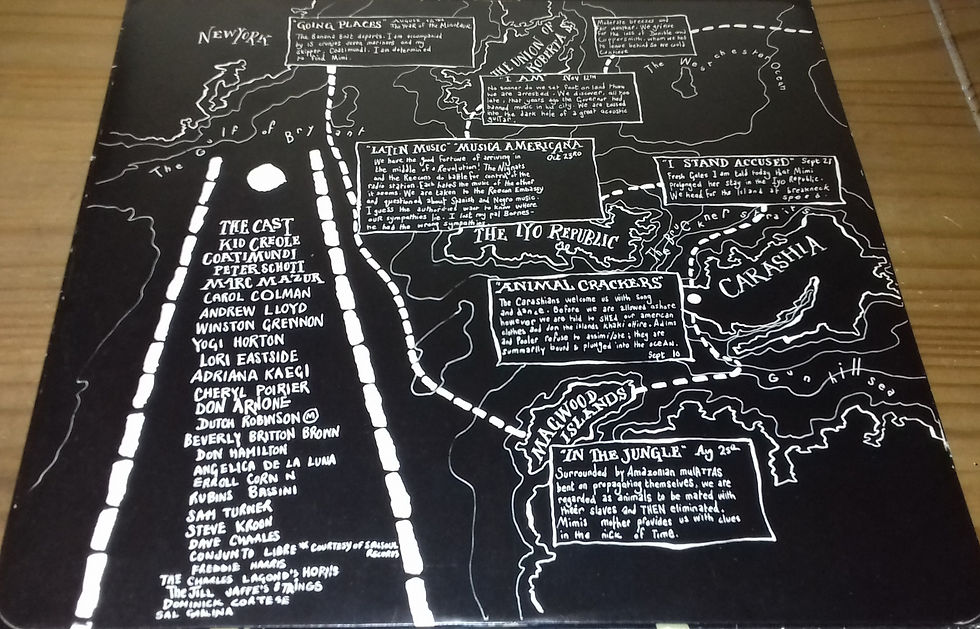 NEW YORK
"GOING PLACES"
The Banana Boat departs. I am accompanied
by 13 cruises
skipper, Coatimundi. I am determined
to find Mimi.
THE UNION OF
ROBERTA
Moderate breezes and
We grieve
for the loss of
Coppersmith, whom we had
to leave behind so we could
continue
The Westchester Ocean
"I AM" Nov 12th
No sooner do we set foot on land than
we are arrested. We discover, all too
late, that years ago the Governor had
banned music in his city. We are tossed
into the dark hole of a great acoustic
guitar.
The Gulf of Bryant
"LATIN MUSIC" "MUSICA AMERICANA
Oct 23RD
We have the good fortune of arriving in
the middle of a Revolution! The
and the Reecons do battle for control of the
radio station. Each hates the music of the other
it seems. We are taken to the Reecon Embassy
and questioned about Spanish and Negro music.
I guess the authorities want to know where
our sympathies lie. I lost my pal Barnes-
he had the wrong sympathies.
"I STAND ACCUSED" Sept 25
Fresh Gales I am told today that Mimi
prolonged her stay in the Iyo Republic.
We head for the island at breakneck
speed.
THE IYO REPUBLIC
The Bruckner Strait
CARASHIA
"ANIMAL CRACKERS"
The Carashians welcome us with song
and dance. Before we are allowed ashore
however we are told to SHED our american
clothes and don the islands khaki attire. Adims
and Pooler refuse to assimilate; they are
summarily bound & plunged into the ocean.
Sept 10
Gun hill sea
MAGWOOD
ISLANDS
"IN THE JUNGLE" Ag 23rd
Surrounded by Amazonian mulATTAS
bent on propagating themselves, we are
regarded as animals to be mated with
their slaves and THEN eliminated.
Mimis mother provides us with clues
in the nick of Time.
THE CAST
KID CREOLE
COATIMUNDI
PETER SCHOTT
MARC MAZUR
CAROL COLMAN
ANDREW LLOYD
WINSTON GRENNON
YOGI HORTON
LORI EASTSIDE
ADRIANA KAEGI
CHERYL POIRIER
DON ARNONE
DUTCH ROBINSON (M)
BEVERLY BRITTON BROWN
DON HAMILTON
ANGELICA DE LA LUNA
ERROLL CORN N
RUBINS BASSINI
SAM TURNER
STEVE KROON
DAVE CHARLES
CONJUNTO LIBRE * COURTESY OF SALSOUL
RECORDS
FREDDIE HARRIS
THE CHARLES LAGOND'S HORNS
The JILL JAFFE'S STRINGS
DOMINICK CORTESE
SAL GALLINA